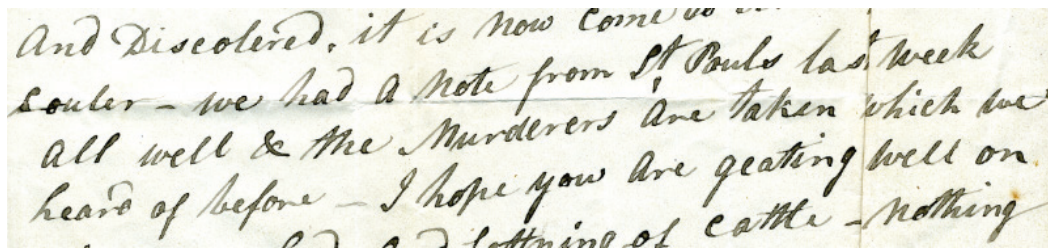 And Discolered, it is now come
couler - we had a Note from St Pouls last week
all well & the Murderers are taken which we
heard of before - I hope you are geating well on
of cattle - nothing